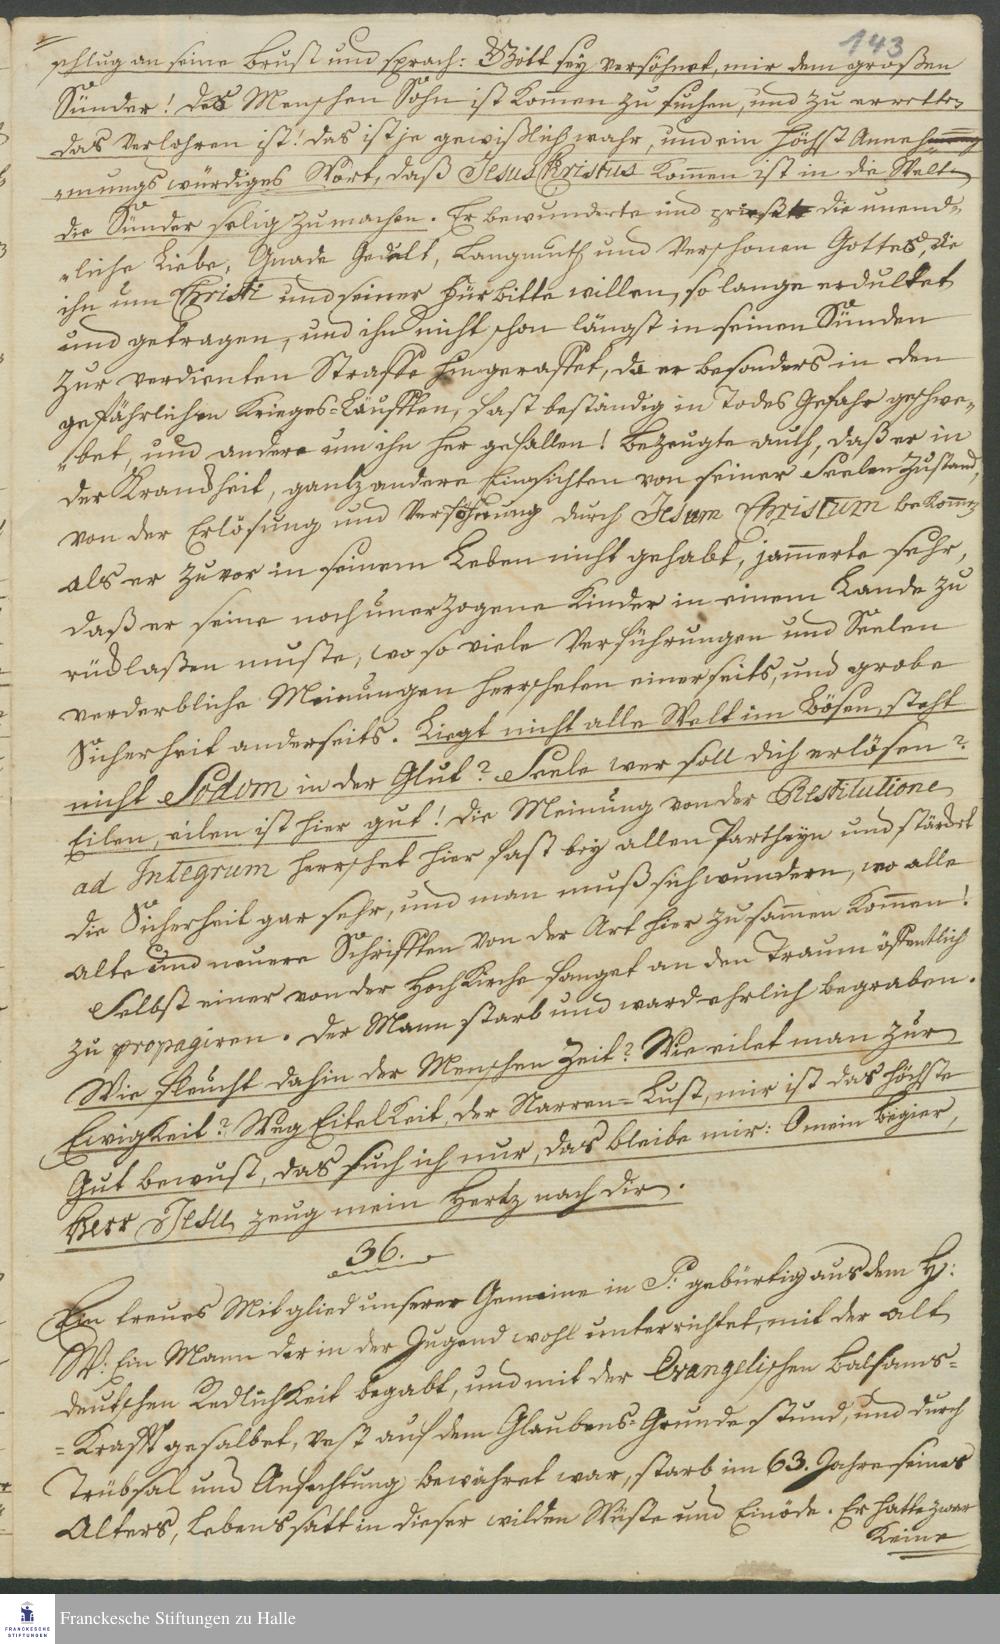 143
schlug an seine Brust und sprach: Gott sey versöhnet, mir dem großen
Sünder! Des Menschen Sohn ist kommen zu suchen, und zu erretten
das verlohren ist! das ist je gewißlich wahr, und ein höchst Anneh
„mungs würdiges Wort, daß Jesus Christus kommen ist in die Welt
die Sünder selig zu machen. Er bewunderte und prießte die unend„
„liche Liebe, Gnade Gedult, Langmuth und Verschonen Gottes, die
ihn um Christi und seiner Fürbitte willen, so lange erdultet
und getragen, und ihn nicht schon längst in seinen Sünden
zur verdienten Straffe hingeraffet, da er besonders in den
gefährlichen Krieges-Läufften, fast beständig in Todes Gefahr geschwe„
„bet, und andere um ihn her gefallen! Bezeugte auch, daß er in
der Kranckheit, gantz andere Einsichten von seiner Seelen Zustand,
von der Erlösung und Versöhnung durch Jesum Christum bekommen
als er zuvor in seinem Leben nicht gehabt, jammerte sehr,
daß er seine noch unerzogene Kinder in einem Lande zu
rücklaßen muste, wo so viele Verführungen und Seelen
verderbliche Meinungen herrscheten einerseits, und grobe
Sicherheit anderseits. Liegt nicht alle Welt im Bösen, steht
nicht Sodom in der Glut? Seele wer soll dich erlösen?
Eilen, eilen ist hier gut! Die Meinung von der Restitutione
ad Integrum herrschet hier fast bey allen Partheyn und stärckt
die Sicherheit gar sehr, und man muß sich wundern, wo alle
alte und neuere Schrifften von der Art hier zusammen kommen!
Selbst einer von der Hochkirche fanget an den Traum öffentlich
zu propagiren. Der Mann starb und ward ehrlich begraben.
Wie fleucht dahin der Menschen Zeit? Wie eilet man zur
Ewigkeit? Weg Eitelkeit, der Narren-Lust, mir ist das höchste
Gut bewust, das such ich nur, das bleibe mir: O mein Begier,
Herr Jesu zeug mein Hertz nach dir.
36.
Ein treues Mitglied unserer Gemeine in P. gebürtig aus dem H:
W: Ein Mann der in der Jugend wohl unterrichtet, mit der alt
deutschen Redlichkeit begabt, und mit der Evangelischen Balsams-
-Krafft gesalbet, vest auf dem Glaubens-Grunde stund, und durch
Trübsal und Anfechtung bewähret war, starb im 63. Jahre seines
Alters, lebenssatt in dieser wilden Wüste und Einöde. Er hatte zwar
Keine
FRANCKESCHE STIFTUNGEN
Franckesche Stiftungen zu Halle